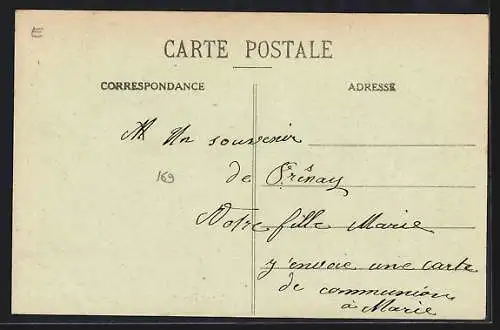 E
CARTE POSTALE
CORRESPONDANCE
ADRESSE
Un souvenir
de Frésnay
169
Notre fille Marie
j'envoie une carte
de communion
à Marie